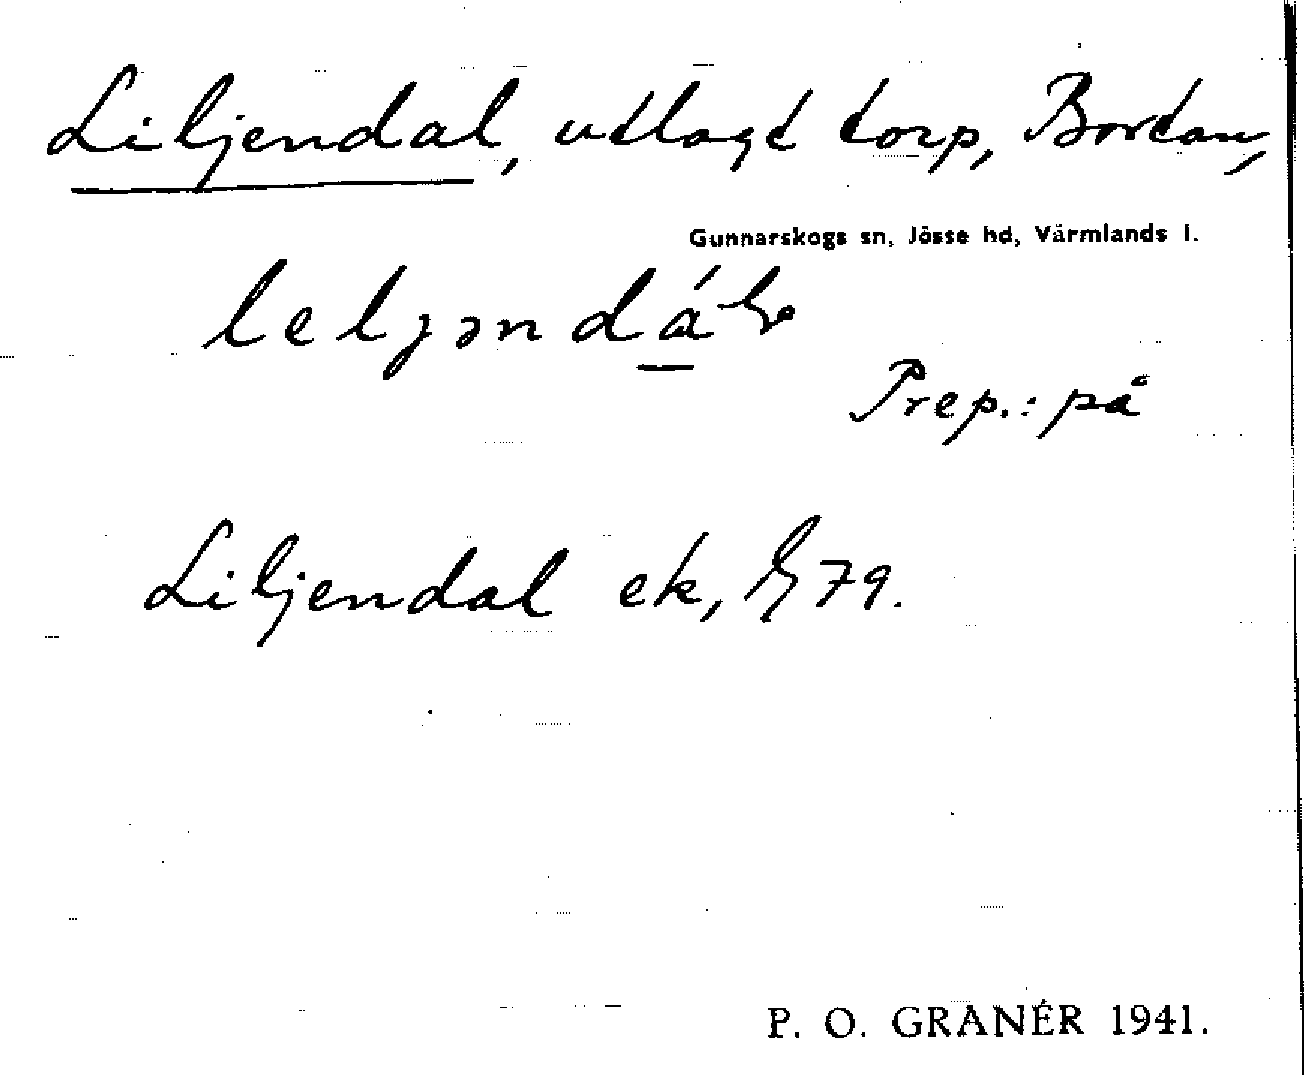 Liljendal, utlagt torp, Bortan,
Gunnarskogs sn, Jösse hd, Värmlands l.
Prep.: på
Liljendal ek, G 79.
P. O. GRANÉR 1941.